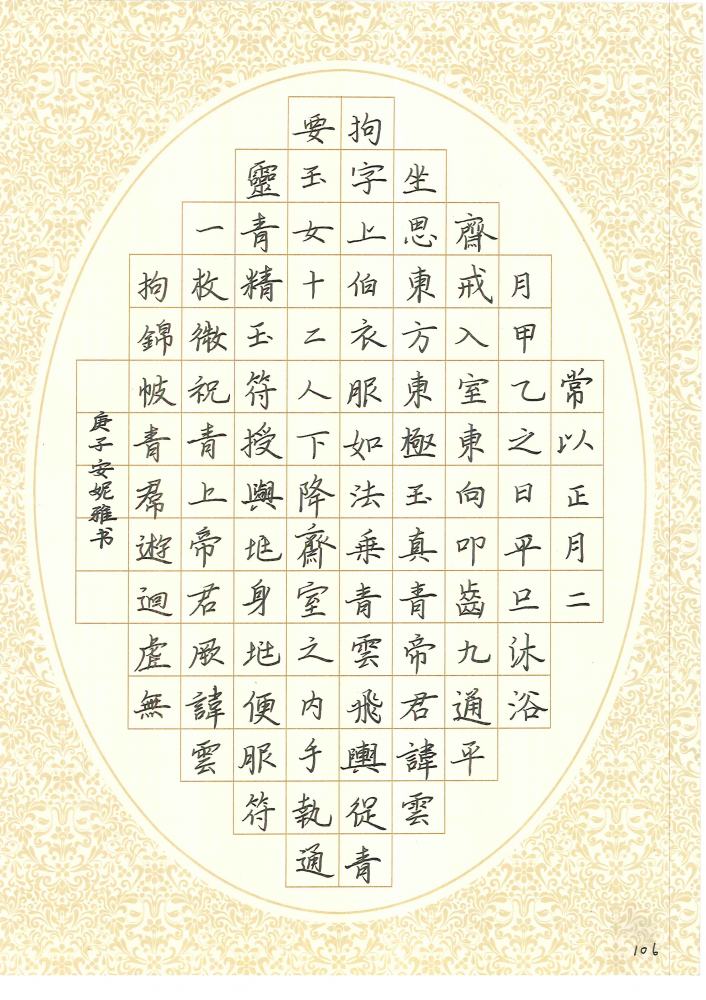 常以正月二
月甲乙之日平旦沐浴
齋戒入室東向叩齒九通平
坐思東方東極玉真青帝君諱雲
拘字上伯衣服如法乗青雲飛輿從青
要玉女十二人下降齋室之內手執通
靈青精玉符授與兆身兆便服符
一枚微祝青上帝君厥諱雲
拘錦帔青帬遊迴虛無
庚子安妮雅书
106